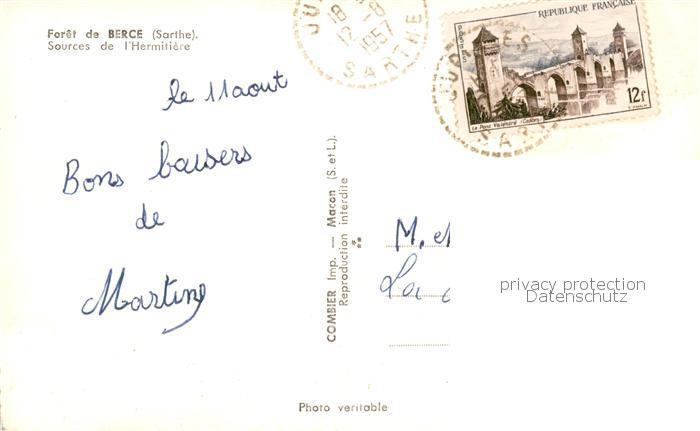 Forêt de BERCE (Sarthe).
Sources de l'Hermitière
le 11 aout
Bons baisers
de
Martine
COMBIER Imp. — Macon (S. et L.).
Reproduction interdite
**
Photo veritable
18 -8
12
1957
SARTHE
REPUBLIQUE FRANÇAISE
POSTES
12F
Le Pont Valentré (Cahors)
SAR
M. et
La
privacy protection
Datenschutz